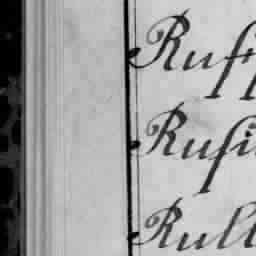 Ruff
Rufi
Rull